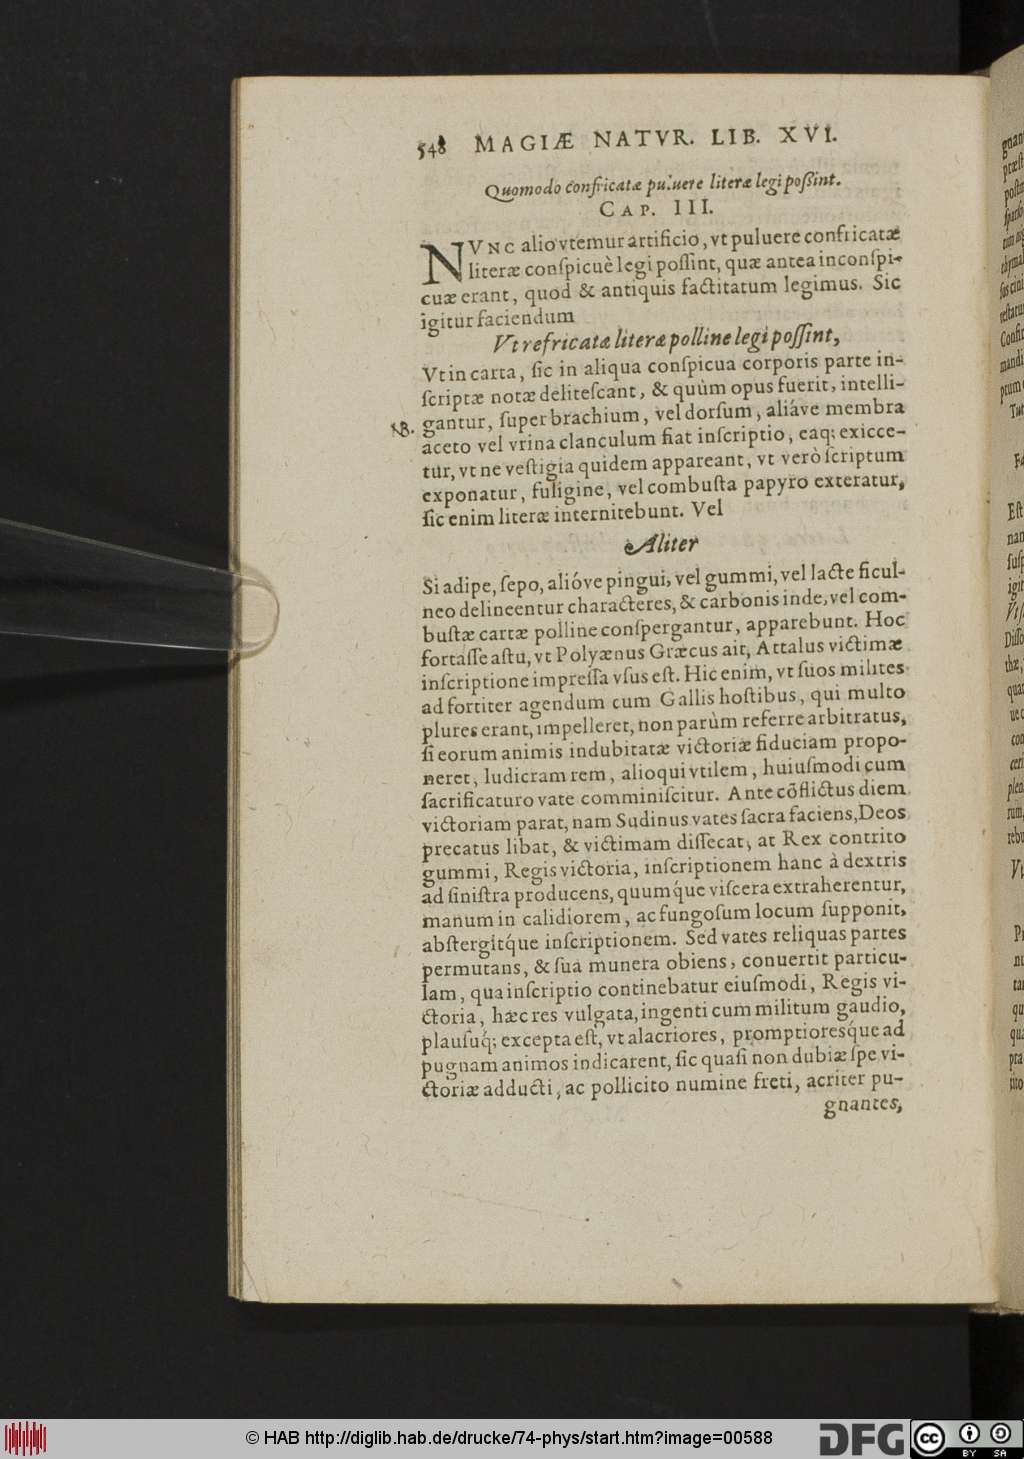 548 MAGIÆ NATVR. LIB. XVI.
Quomodo confricatæ puluere literæ legi poſsint.
CAP. III.
NVNC alio vtemur artificio, vt puluere confricatæ
literæ conſpicuè legi poſſint, quæ antea inconſpi-
cuæ erant, quod & antiquis factitatum legimus. Sic
igitur faciendum
Vt refricatæ literæ polline legi poſſint,
Vt in carta, ſic in aliqua conſpicua corporis parte in-
ſcriptæ notæ deliteſcant, & quùm opus fuerit, intelli-
NB. gantur, ſuper brachium, vel dorſum, aliáve membra
aceto vel vrina clanculum fiat inſcriptio, eaq; exicce-
tur, vt ne veſtigia quidem appareant, vt verò ſcriptum
exponatur, fuligine, vel combuſta papyro exteratur,
ſic enim literæ internitebunt. Vel
Aliter
Si adipe, ſepo, alióve pingui, vel gummi, vel lacte ficul-
neo delineentur characteres, & carbonis inde, vel com-
buſtæ cartæ polline conſpergantur, apparebunt. Hoc
fortaſſe aſtu, vt Polyænus Græcus ait, Attalus victimæ
inſcriptione impreſſa vſus eſt. Hic enim, vt ſuos milites
ad fortiter agendum cum Gallis hoſtibus, qui multo
plures erant, impelleret, non parùm referre arbitratus,
ſi eorum animis indubitatæ victoriæ fiduciam propo-
neret, ludicram rem, alioqui vtilem, huiuſmodi cum
ſacrificaturo vate comminiſcitur. Ante cõflictus diem
victoriam parat, nam Sudinus vates ſacra faciens, Deos
precatus libat, & victimam diſſecat, at Rex contrito
gummi, Regis victoria, inſcriptionem hanc à dextris
ad ſiniſtra producens, quumq́ue viſcera extraherentur,
manum in calidiorem, ac fungoſum locum ſupponit,
abſtergitq́ue inſcriptionem. Sed vates reliquas partes
permutans, & ſua munera obiens, conuertit particu-
lam, qua inſcriptio continebatur eiuſmodi, Regis vi-
ctoria, hæc res vulgata, ingenti cum militum gaudio,
plauſuq́; excepta eſt, vt alacriores, promptioresq́ue ad
pugnam animos indicarent, ſic quaſi non dubiæ ſpe vi-
ctoriæ adducti, ac pollicito numine freti, acriter pu-
gnantes,
© HAB http://diglib.hab.de/drucke/74-phys/start.htm?image=00588
DFG
cc BY SA